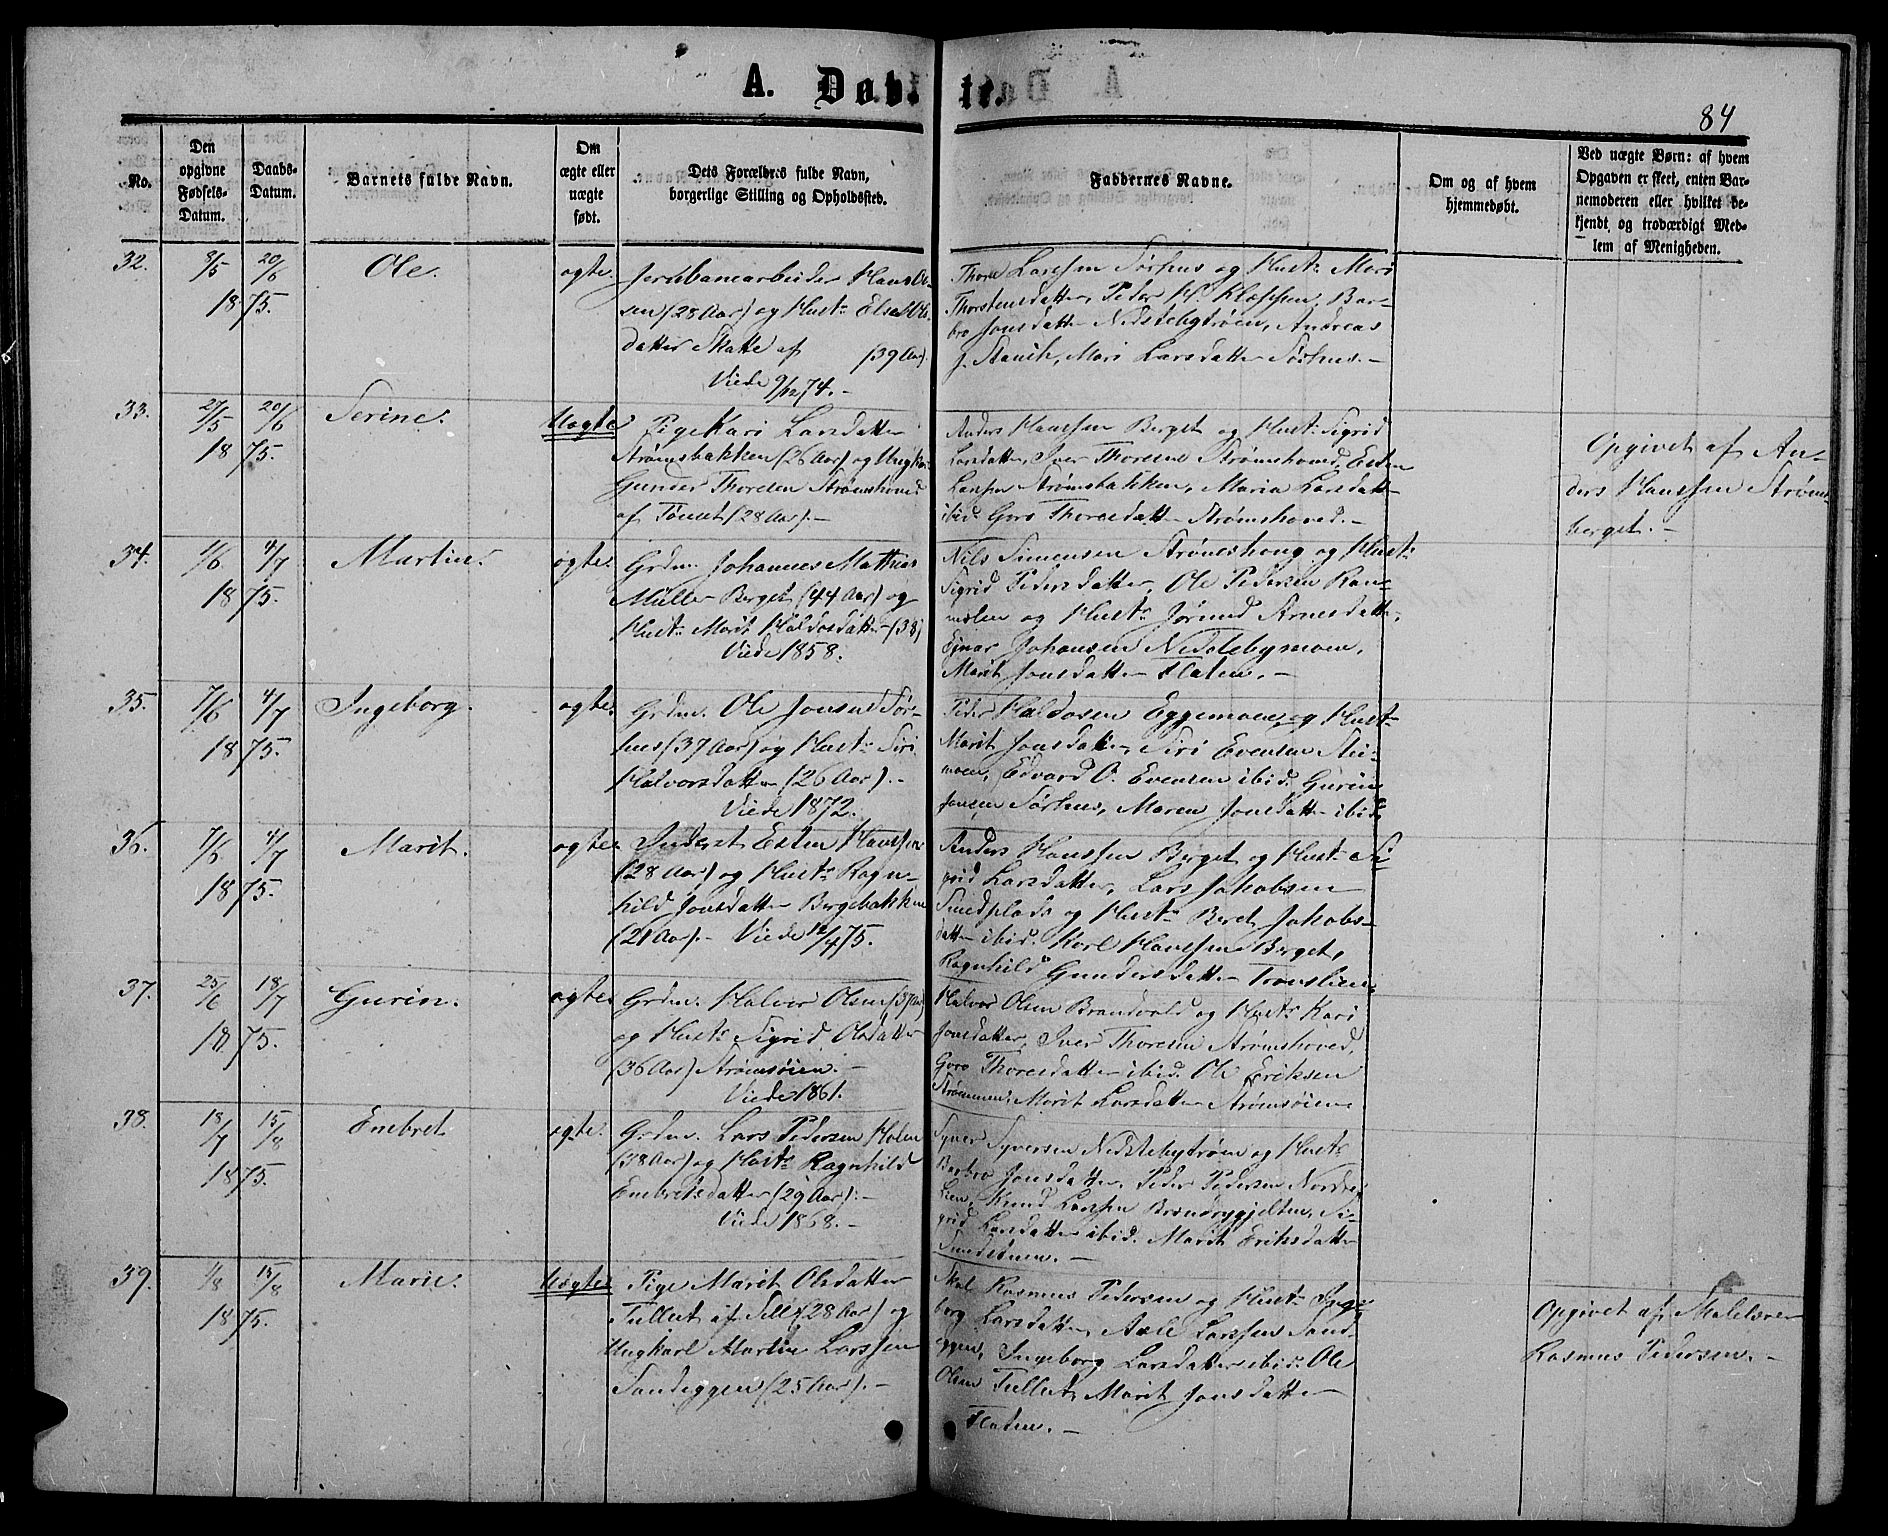 A. Døbte.
84
No.
Den opgivne Fødsels-Datum.
Daabs-Datum.
Barnets fulde Navn.
Om ægte eller uægte født.
Dets Forældres fulde Navn, borgerlige Stilling og Opholdssted.
Faddernes Navne.
Om og af hvem hjemmedøbt.
Ved uægte Børn: af hvem Opgaven er skeet, enten Barnemoderen eller hvilket bekjendt og troværdigt Medlem af Menigheden.
32. 8/5 20/6 1875. Ole. ægte.
Jernbanearbeider Hans Ol-
sen (28 Aar) og Hust: Else Ols-
datter af (39 Aar).
Viede 9/12 74. -
Thore Larssen Sørhus og Hust: Mari
Thorstensdatter, Peder H. Klæppen, Bar-
bro Jonsdatter Nedstebytrøen, Andreas
J. Mari Larsdatter Sørhus. -
33. 27/5 20/6 1875. Serine. Uægte
Pige Kari Larsdatter
Strømsbakken (26 Aar) og Ungkar
Gunder Thoresen Strømshoved
af Tønset (28 Aar). -
Anders Hanssen Berget og Hust: Sigrid
Larsdatter, Iver Thoresen Strømshoved, Esten
Larssen Strømsbakken, Maria Larsdatter
ibid. Goro Thoresdatter Strømshoved. -
Opgivet af An-
ders Hanssen Strøms-
berget. -
34. 1/6 4/7 1875. Martin. ægte.
Grdm. Johannes Mathias
Müller Berget (44 Aar) og
Hust: Marit Haldosdatter (38)
Viede 1858.
Nils Simensen Strømshaug og Hust:
Sigrid Pedersdatter, Ole Pedersen Ram-
molen og Hust: Jørund Arnesdatter,
Ejnar Johansen Nedstebymoen,
Marit Jonsdatter Flaten. -
35. 7/6 4/7 1875. Ingeborg. ægte.
Grdm. Ole Jonsen Sør-
hus (37 Aar) og Hust: Siri
Halvorsdatter (26 Aar). -
Viede 1872.
Peder Haldosen Eggemoen og Hust:
Marit Jonsdatter, Siri Evensen
moen, Edvard O. Evensen ibid. Gurin
Jonsen Sørhus, Maren Jonsdatter ibid.
36. 7/6 4/7 1875. Marit. ægte.
Inderst Esten Hanssen
(28 Aar) og Hust: Ragn-
hild Jonsdatter Bergebakken
(21 Aar). - Viede /4 75.
Anders Hanssen Berget og Hust: Si-
grid Larsdatter, Lars Jakobsen
Sundplads og Hust: Beret Jakobs-
datter ibid. Karl Hanssen Berget,
Ragnhild Gundersdatter Tronslien.
37. 25/6 18/7 1875. Gurin. ægte.
Grdm. Halvor Olsen (37 Aar)
og Hust: Sigrid Olsdatter
(36 Aar) Strømsøien. -
Viede 1861.
Halvor Olsen Brandvold og Hust: Kari
Jonsdatter, Iver Thoresen Strømshoved,
Goro Thoresdatter ibid. Ole Eriksen
Strømmen, Marit Larsdatter Strømsøien.
38. 18/7 15/8 1875. Enebret. ægte.
Grdm. Lars Pedersen Holen
(38 Aar) og Hust: Ragnhild
Enebretsdatter (29 Aar). -
Viede 1868. -
Syver Syversen Nedstebytrøen og Hust:
Barbro Jonsdatter, Peder Pedersen Nordre
Lien, Knud Larssen Brændryggjelten, Si-
grid Larsdatter ibid. Marit Eriksdatter
Sundsøien. -
39. 1/8 15/8 1875. Marie. Uægte
Pige Marit Olsdatter
Tullut af Sell (28 Aar) og
Ungkarl Martin Larssen
Sandeggen (25 Aar). -
Skol. Rasmus Pedersen og Hust: Inge-
borg Larsdatter, Axle Larssen Sand-
eggen, Ingeborg Larsdatter ibid. Ole
Olsen Tullut, Marit Jonsdatter
Flaten. -
Opgivet af
Rasmus Pedersen. -